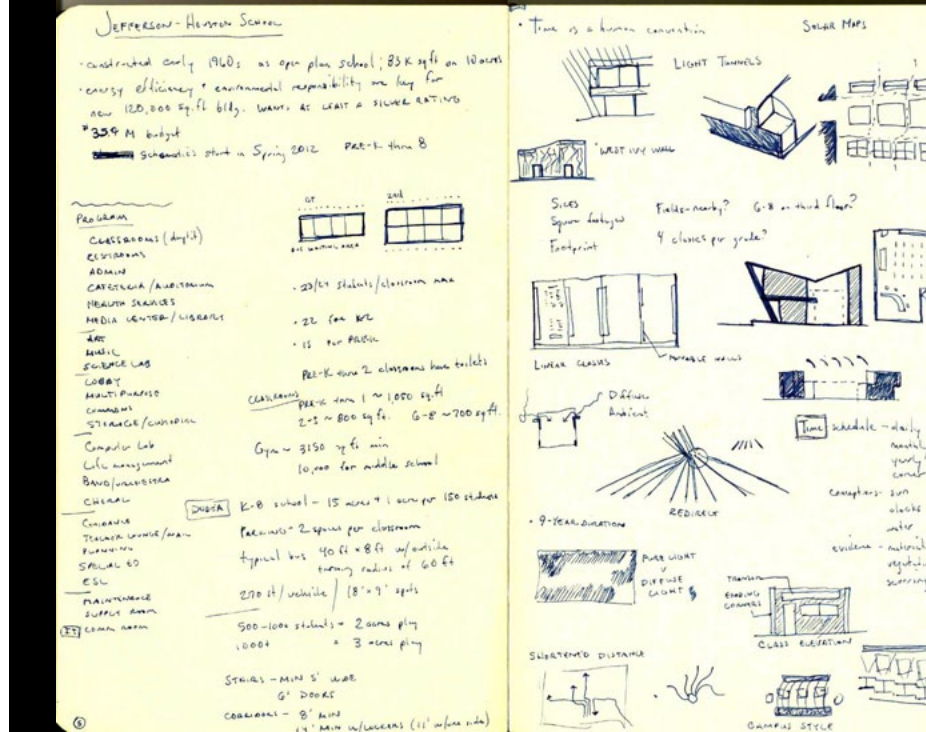 JEFFERSON-HOUSTON SCHOOL
· constructed early 1960s as open plan school; 83K sqft on 10 acres
· energy efficiency + environmental responsibility are key for
new 120,000 sq.ft bldg. WANTS AT LEAST A SILVER RATING
$35.4 M budget
Schematics start in Spring 2012 PRE-K thru 8
PROGRAM
CLASSROOMS (daylit)
RESTROOMS
ADMIN
CAFETERIA/AUDITORIUM
HEALTH SERVICES
MEDIA CENTER/LIBRARY
ART
MUSIC
SCIENCE LAB
LOBBY
MULTIPURPOSE
COMMONS
STORAGE/CUSTODIAL
Computer Lab
Life management
BAND/ORCHESTRA
CHORAL
GUIDANCE
TEACHER LOUNGE/MAIL
PLANNING
SPECIAL ED
ESL
MAINTENANCE
SUPPLY ROOM
COMM ROOM
2nd
BUS WAITING AREA
· 23/24 students/classroom max
· 22 for K-2
· 15 for PREK
PRE-K thru 2 classrooms have toilets
CLASSROOMS
PRE-K thru 1 ~ 1,050 sq.ft
2-5 ~ 800 sq.ft. 6-8 ~ 700 sq.ft.
Gym ~ 3150 sq ft min
10,000 for middle school
K-8 school - 15 acres + 1 acre per 150 students
PARKING - 2 spaces per classroom
typical bus 40 ft x 8 ft w/outside
turning radius of 60 ft
270 sf/vehicle / 18' x 9' spots
500-1000 students = 2 acres play
1000+ = 3 acres play
STAIRS - MIN 5' WIDE
6' DOORS
CORRIDORS - 8' MIN
MIN W/LOCKERS (w/one side)
· Time is a human convention
SOLAR MAPS
LIGHT TUNNELS
WEST IVY WALL
SIZES
Square footages
Footprint
Fields-nearby?
4 classes per grade?
6-8 on third floor?
LINEAR CLASSES
MOVABLE WALLS
Diffuse
Ambient
REDIRECT
Time schedule - daily
monthly
yearly
conceptions - sun
clocks
water
evidence - material
· 9-YEAR DURATION
PURE LIGHT
V
DIFFUSE
LIGHT
TRANSOM
READING
CORNERS
CLASS ELEVATION
SHORTENED DISTANCE
CAMPUS STYLE